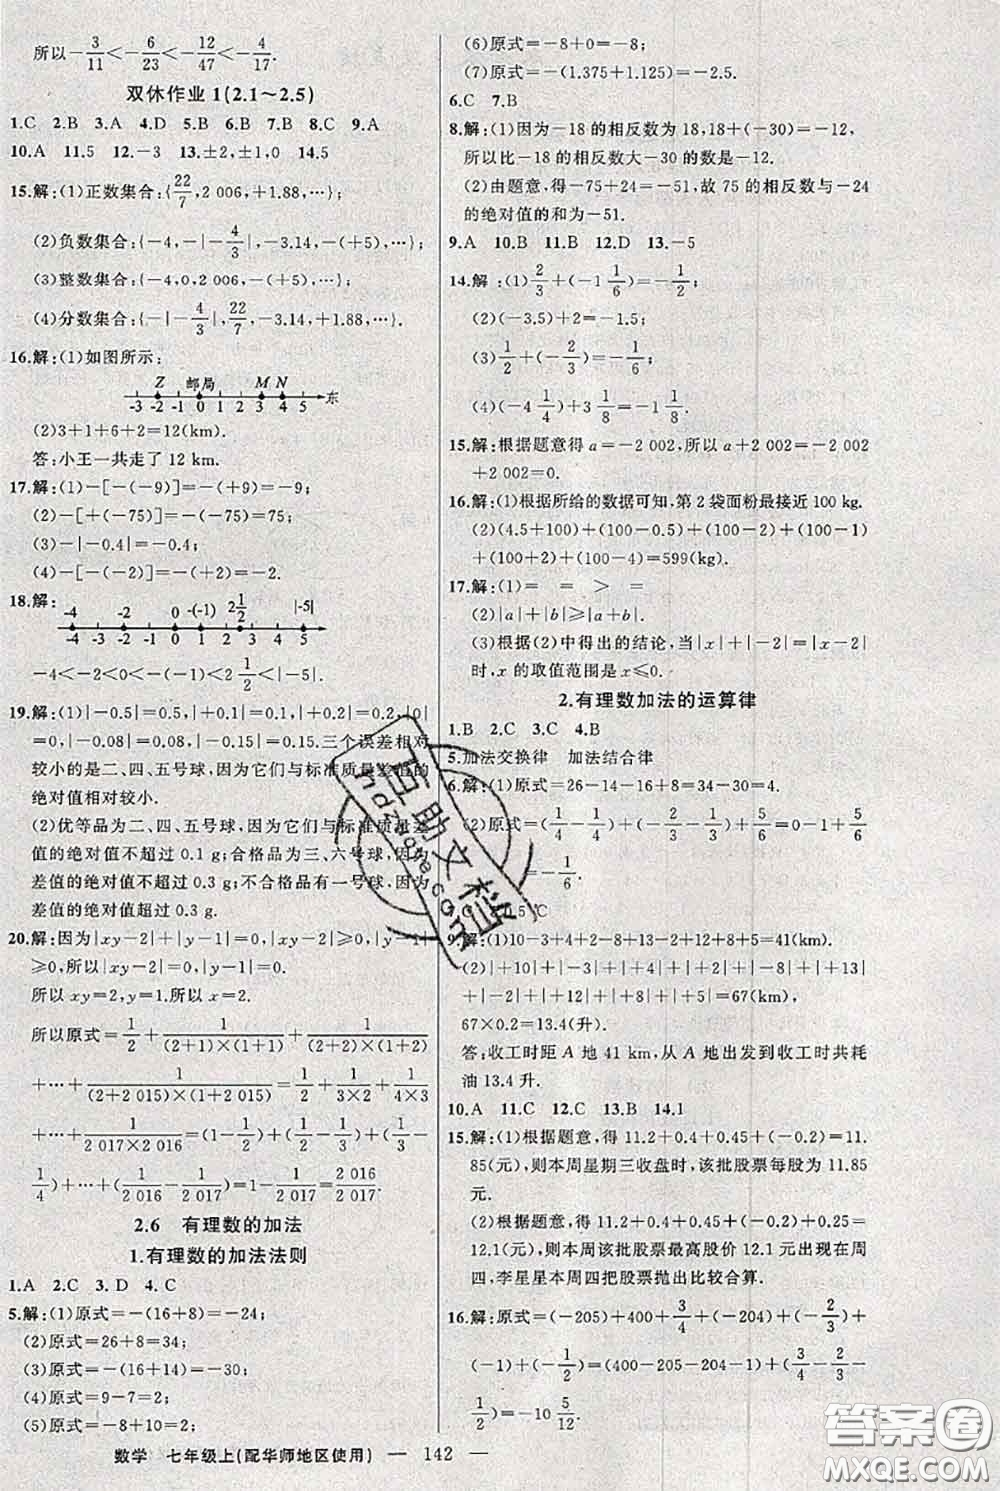 所以-3/11<-6/23<-12/47<-4/17.
双休作业1(2.1～2.5)
1.C 2.B 3.A 4.D 5.B 6.B 7.B 8.C 9.A
10.A 11.5 12.-3 13.±2,±1,0 14.5
15.解:(1)正数集合:{22/7,2 006,+1.88,…};
(2)负数集合:{-4,-|-4/3|,-3.14,-(+5),…};
(3)整数集合:{-4,0,2 006,-(+5),…};
(4)分数集合:{-|-4/3|,22/7,-3.14,+1.88,…}.
16.解:(1)如图所示:
Z 邮局 M N
-3 -2 -1 0 1 2 3 4 5 东
(2)3+1+6+2=12(km).
答:小王一共走了 12 km.
17.解:(1)-[-(-9)]=-(+9)=-9;
(2)-[+(-75)]=-(-75)=75;
(3)-|-0.4|=-0.4;
(4)-[-(-2)]=-(+2)=-2.
18.解:
-4 -2 0 -(-1) 2 1/2 |-5|
-4 -3 -2 -1 0 1 2 3 4 5
-4<-2<0<-(-1)<2 1/2<|-5|
19.解:(1)|-0.5|=0.5,|+0.1|=0.1,|+0.2|=0.2,|0|
=0,|-0.08|=0.08,|-0.15|=0.15.三个误差相对
较小的是二、四、五号球,因为它们与标准质量差值的
绝对值相对较小.
(2)优等品为二、四、五号球,因为它们与标准质量差
值的绝对值不超过 0.1 g;合格品为三、六号球,因为
差值的绝对值不超过 0.3 g;不合格品有一号球,因为
差值的绝对值超过 0.3 g.
20.解:因为|xy-2|+|y-1|=0,|xy-2|≥0,|y-1|
≥0,所以|xy-2|=0,|y-1|=0.
所以 xy=2,y=1.所以 x=2.
所以原式=1/2+1/((2+1)×(1+1))+1/((2+2)×(1+2))
+…+1/((2+2 015)×(1+2 015))=1/2+1/(3×2)+1/(4×3)
+…+1/(2 017×2 016)=(1-1/2)+(1/2-1/3)+(1/3-
1/4)+…+(1/2 016-1/2 017)=1-1/2 017=2 016/2 017.
2.6 有理数的加法
1.有理数的加法法则
1.A 2.C 3.D 4.C
5.解:(1)原式=-(16+8)=-24;
(2)原式=26+8=34;
(3)原式=-(14+16)=-30;
(4)原式=9-7=2;
(5)原式=-8+10=2;
(6)原式=-8+0=-8;
(7)原式=-(1.375+1.125)=-2.5.
6.C 7.B
8.解:(1)因为-18的相反数为18,18+(-30)=-12,
所以比-18的相反数大-30的数是-12.
(2)由题意,得-75+24=-51,故 75 的相反数与-24
的绝对值的和为-51.
9.A 10.B 11.B 12.D 13.-5
14.解:(1)2/3+(-1 1/6)=-1/2;
(2)(-3.5)+2=-1.5;
(3)1/2+(-2/3)=-1/6;
(4)(-4 1/4)+3 1/8=-1 1/8.
15.解:根据题意得 a=-2 002,所以 a+2 002=-2 002
+2 002=0.
16.解:(1)根据所给的数据可知,第 2 袋面粉最接近 100 kg.
(2)(4.5+100)+(100-0.5)+(100-2)+(100-1)
+(100+2)+(100-4)=599(kg)
17.解:(1)= = > =
(2)|a|+|b|≥|a+b|;
(3)根据(2)中得出的结论,当|x|+|-2|=|x-2|
时,x 的取值范围是 x≤0.
2.有理数加法的运算律
1.B 2.C 3.C 4.B
5.加法交换律 加法结合律
6.解:(1)原式=26-14-16+8=34-30=4.
(2)原式=(1/4-1/4)+(-1/3-2/3)+5/6=0-1+5/6
=-1/6.
8.C
9.解:(1)10-3+4+2-8+13-2+12+8+5=41(km).
(2)|+10|+|-3|+|+4|+|+2|+|-8|+|+13|
+|-2|+|+12|+|+8|+|+5|=67(km),
67×0.2=13.4(升).
答:收工时距 A 地 41 km,从 A 地出发到收工时共耗
油 13.4 升.
10.A 11.C 12.C 13.B 14.1
15.解:(1)根据题意,得 11.2+0.4+0.45+(-0.2)=11.
85(元),则本周星期三收盘时,该批股票每股为 11.85
元.
(2)根据题意,得 11.2+0.4+0.45-0.2+0.25=
12.1(元),则本周该批股票最高股价 12.1 元出现在周
四,李星星本周四把股票抛出比较合算.
16.解:原式=(-205)+400+3/4+(-204)+(-2/3)+
(-1)+(-1/2)=(400-205-204-1)+(3/4-2/3-
1/2)=-10 5/12.
数学 七年级上(配华师地区使用) — 142 —
互助文档
答案圈
MXQE.COM